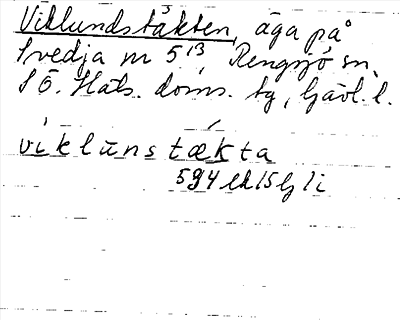 Viklundstäkten, äga på
Svedja nr 5¹³, Rengsjö sn,
S Ö. Häls. doms. tg, Gävl. l.
viklūnstækta
594